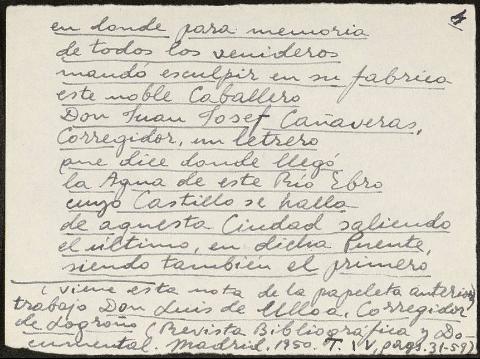 4
en donde para memoria
de todos los venideros
mandó esculpir en su fabrica
este noble Caballero
Don Juan Josef Cañaveras,
Corregidor, un letrero
que dice donde llegó
la Agua de este Río Ebro
cuyo Castillo se halla
de aquesta Ciudad saliendo
el último, en dicha Puente,
siendo también el primero
(viene esta nota de la papeleta anterior,
trabajo Don Luis de Ulloa, Corregidor
de Logroño (Revista Bibliográfica y Do-
cumental. Madrid, 1950. T. IV, pags. 31-59)